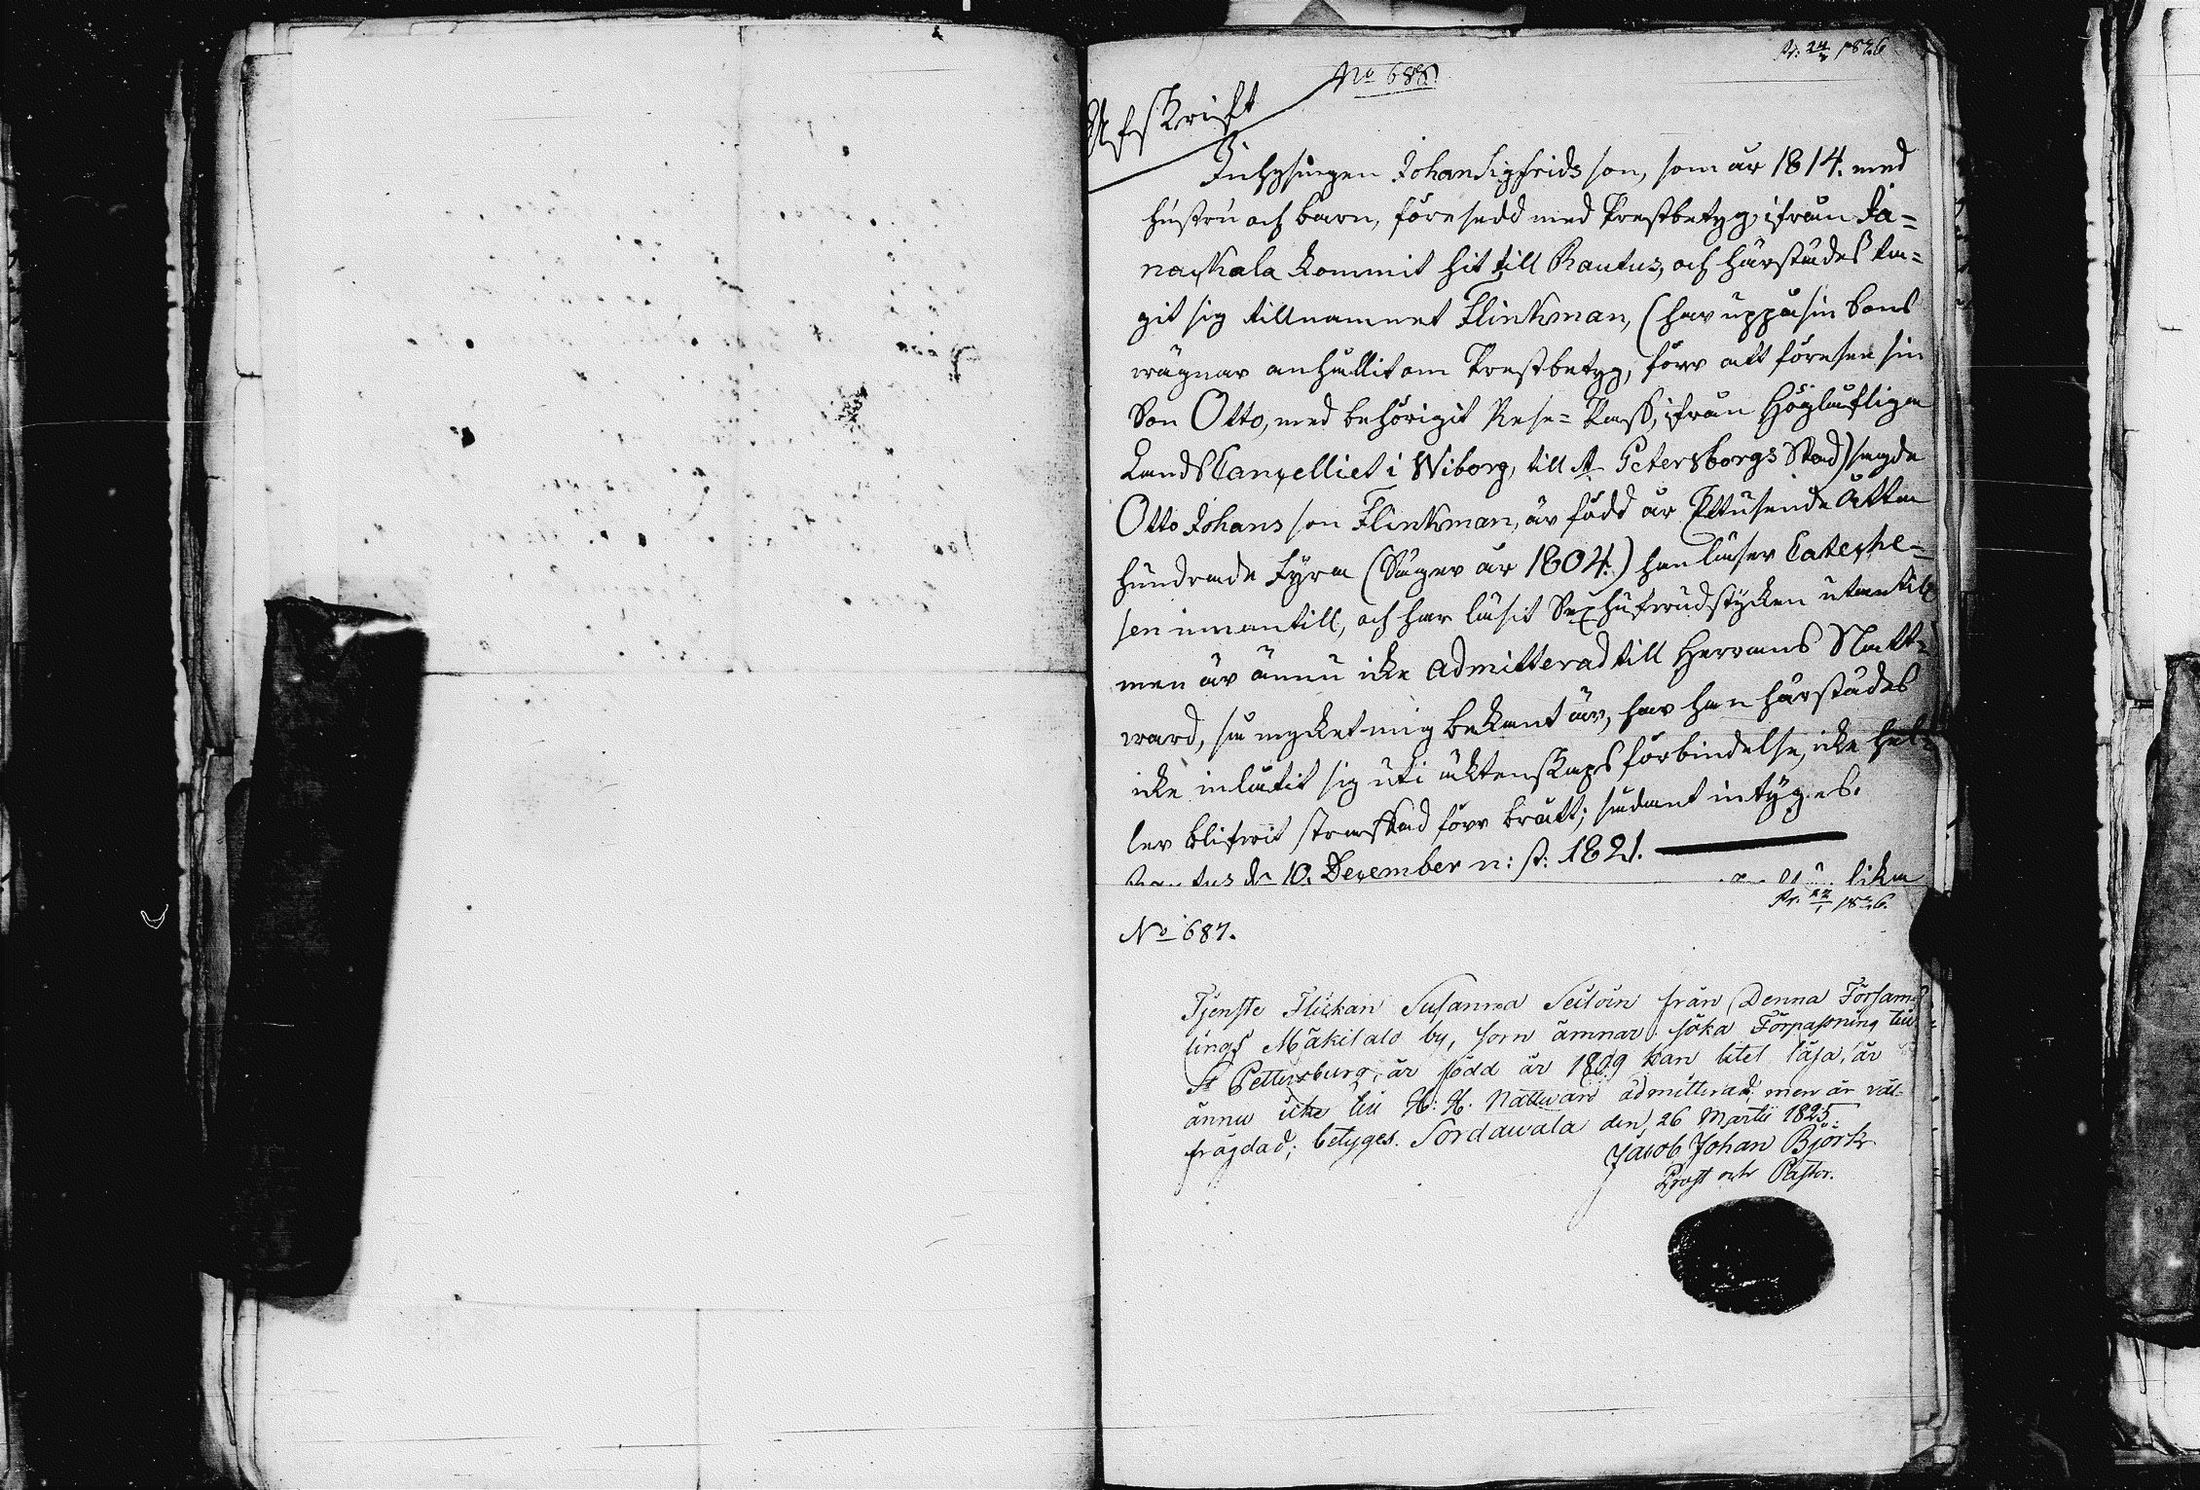 Pr. 24/2 1826
No 688.
Afskrift
Inhysingen Johan Sigfrids son, som år 1814. med
hustru och barn, försedd med Prestbetyg, ifrån Ja-
nackala kommit hit till Rautus, och härstädes ta-
git sig tillnamnet Flinkman, (har uppå sin Sons
wägnar anhållit om Prestbetyg, förr att förese sin
Son Otto, med behörigit Rese-Pass, ifrån Höglofliga
LandsCancelliet i Wiborg, till St Petersborgs Stad) sagde
Otto Johans son Flinkman, är född år Ettusende Åtta
hundrade Fyra (Säger år 1804.) han läser Cateche-
sen innantill, och har läsit Sex hufwudstycken utantill
men är ännu icke admitterad till Herrans Natt-
ward, så mycket mig bekant är, har han härstädes
icke inlåtit sig uti äktenskaps förbindelse, icke hel-
ler blifwit straffad förr brått; sådant intyges.
Rautus d. 10. December n: st: 1821.
lika
Pr. 22/1 1826.
No 687.
Tjenste Flickan Susanna Seiloin från Denna Försam-
lings Mäkisalo by, som ämnar söka Förpassning till
St Pettersburg, är född år 1809 kan litet läsa, är
ännu icke till H: H. Nattward admitterad; men är väl-
frägdad; betyges. Sordawala den 26 Martii 1825.
Jacob Johan Björk
Prost och Pastor.